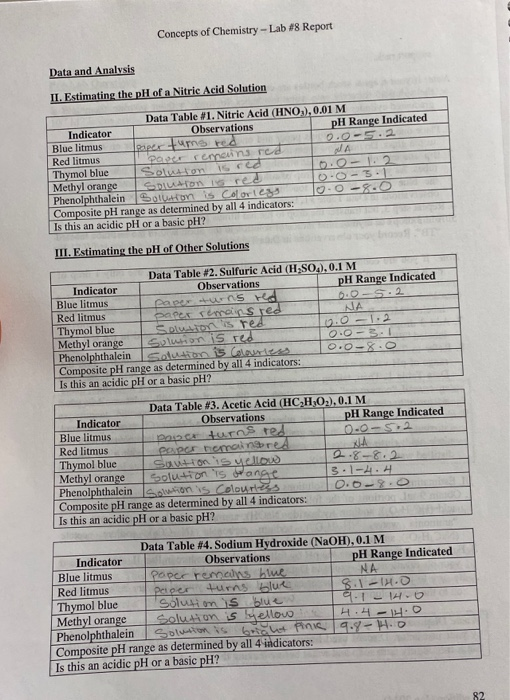 Concepts of Chemistry – Lab #8 Report
Data and Analysis
II. Estimating the pH of a Nitric Acid Solution
Data Table #1. Nitric Acid (HNO₃), 0.01 M
Indicator Observations pH Range Indicated
Blue litmus paper turns red 0.0-5.2
Red litmus Paper remains red NA
Thymol blue Solution is red 0.0-1.2
Methyl orange Solution is red 0.0-3.1
Phenolphthalein Solution is Colorless 0.0-8.0
Composite pH range as determined by all 4 indicators:
Is this an acidic pH or a basic pH?
III. Estimating the pH of Other Solutions
Data Table #2. Sulfuric Acid (H₂SO₄), 0.1 M
Indicator Observations pH Range Indicated
Blue litmus Paper turns red 0.0-5.2
Red litmus Paper remains red NA
Thymol blue Solution is red 0.0-1.2
Methyl orange Solution is red 0.0-3.1
Phenolphthalein Solution is Colourless 0.0-8.0
Composite pH range as determined by all 4 indicators:
Is this an acidic pH or a basic pH?
Data Table #3. Acetic Acid (HC₂H₃O₂), 0.1 M
Indicator Observations pH Range Indicated
Blue litmus paper turns red 0.0-5.2
Red litmus paper remains red NA
Thymol blue Solution is yellow 2.8-8.2
Methyl orange Solution is orange 3.1-4.4
Phenolphthalein Solution is Colourless 0.0-8.0
Composite pH range as determined by all 4 indicators:
Is this an acidic pH or a basic pH?
Data Table #4. Sodium Hydroxide (NaOH), 0.1 M
Indicator Observations pH Range Indicated
Blue litmus Paper remains blue NA
Red litmus Paper turns blue 8.1-14.0
Thymol blue Solution is blue 9.1-14.0
Methyl orange Solution is yellow 4.4-14.0
Phenolphthalein Solution is bright Pink 9.8-14.0
Composite pH range as determined by all 4 indicators:
Is this an acidic pH or a basic pH?
82